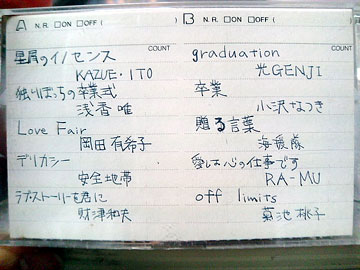 A N.R. □ON □OFF (
COUNT
星屑のイノセンス
KAZUE・ITO
独りぼっちの卒業式
浅香 唯
Love Fair
岡田 有希子
デリカシー
安全地帯
ラブ・ストーリーを君に
財津和夫
B N.R. □ON □OFF (
COUNT
graduation
光GENJI
卒業
小沢なつき
贈る言葉
海援隊
愛は心の仕事です
RA-MU
off limits
菊池 桃子